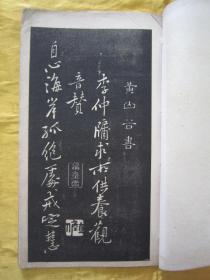 黄山谷書
李仲牖求所供養觀
音贊
自心海岸孤絶處戒定慧